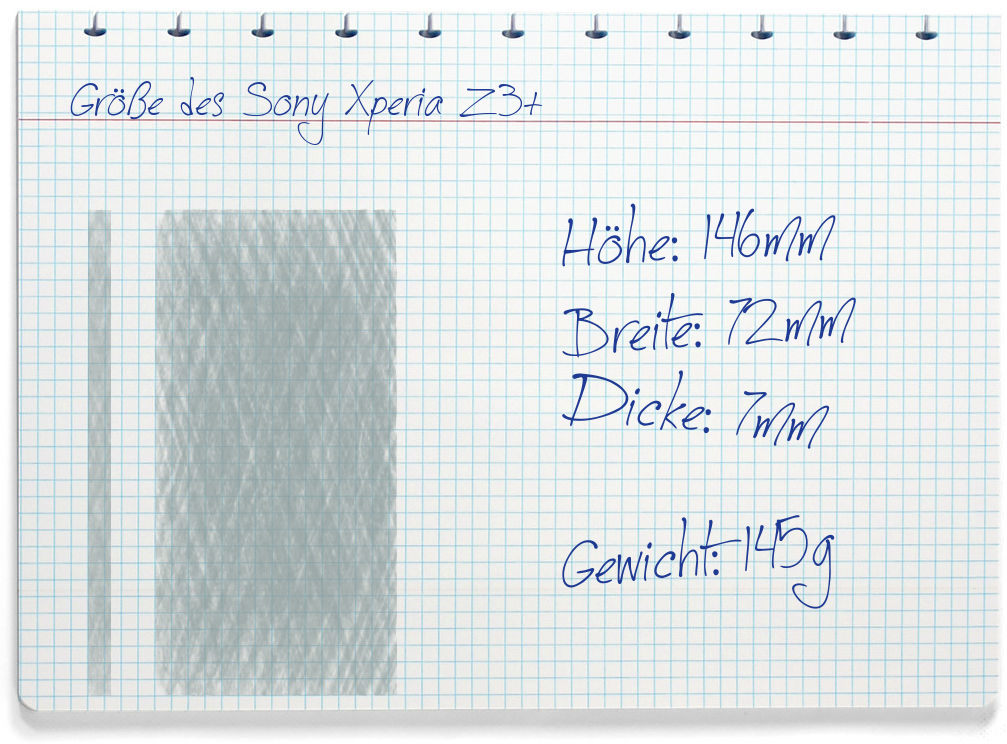 Größe des Sony Xperia Z3+
Höhe: 146mm
Breite: 72mm
Dicke: 7mm
Gewicht: 145g